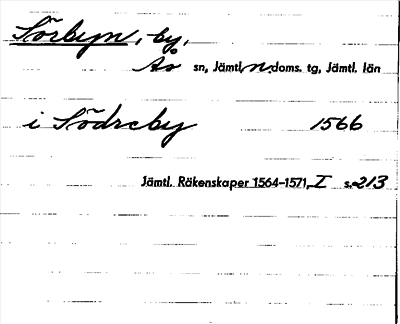 Sörbyn, by,
As sn, Jämtl. n. doms. tg, Jämtl. län
i Södreby 1566
Jämtl. Räkenskaper 1564-1571, I s. 213